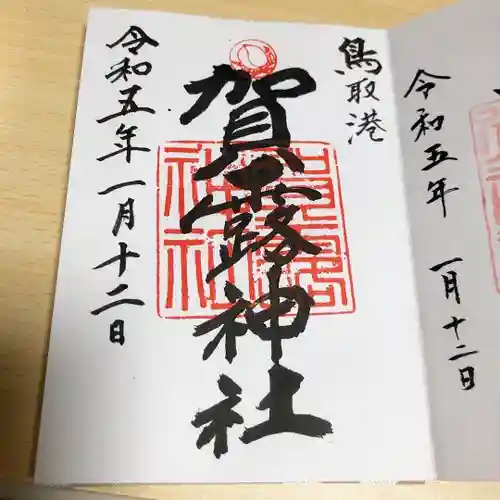 令和五年 一月十二日
鳥取港
賀露神社
賀露神社
令和五年 一月十二日